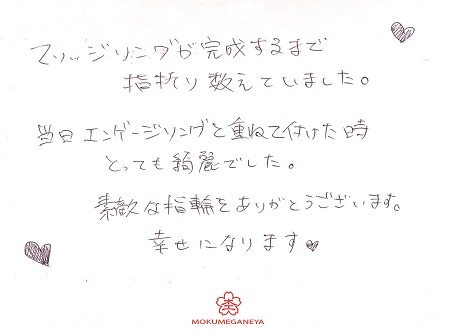 マリッジリングが完成するまで
指折り数えていました。
当日エンゲージリングと重ねて付けた時
とっても綺麗でした。
素敵な指輪をありがとうございます。
幸せになります
MOKUMEGANEYA